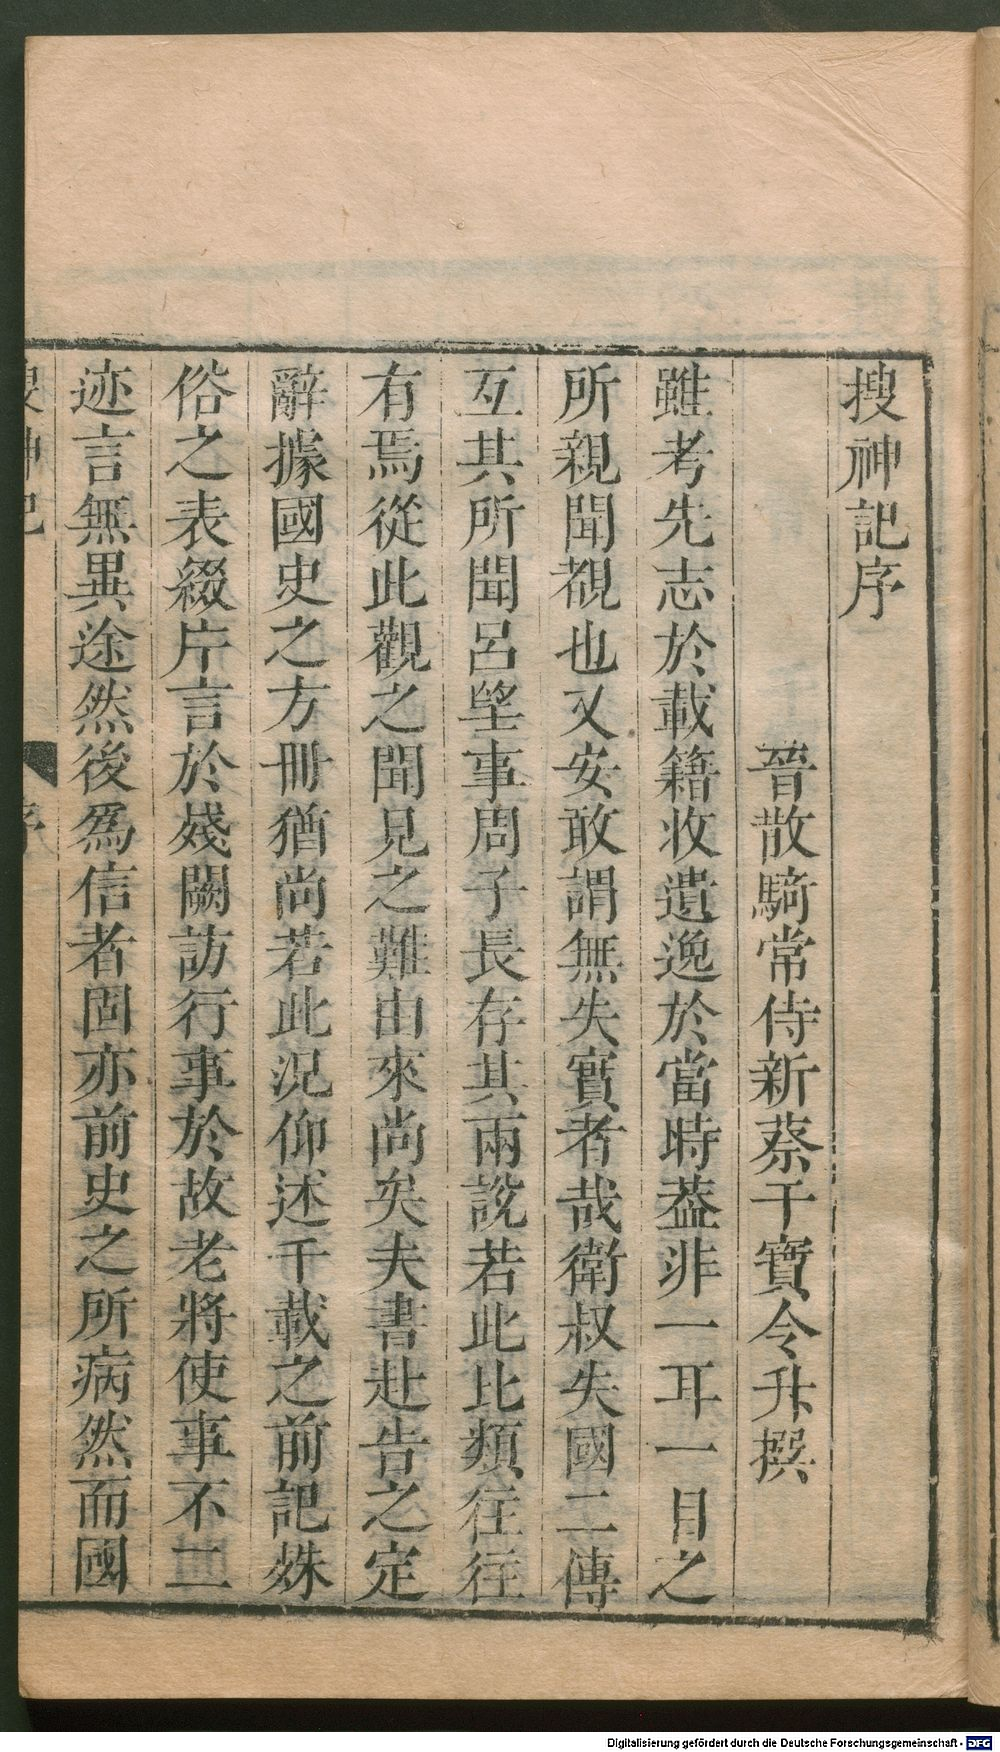 搜神記序
晉散騎常侍新蔡干寶令升撰
雖考先志於載籍收遺逸於當時葢非一耳一目之
所親聞覩也又安敢謂無失實者哉衛叔失國二傳
互其所聞呂望事周子長存其兩說若此比類往往
有焉從此觀之聞見之難由來尚矣夫書赴告之定
辭據國史之方冊猶尚若此況仰述千載之前記姝
俗之表綴片言於殘闕訪行事於故老將使事不二
迹言無異途然後爲信者固亦前史之所病然而國
搜神記
序
Digitalisierung gefördert durch die Deutsche Forschungsgemeinschaft - DFG